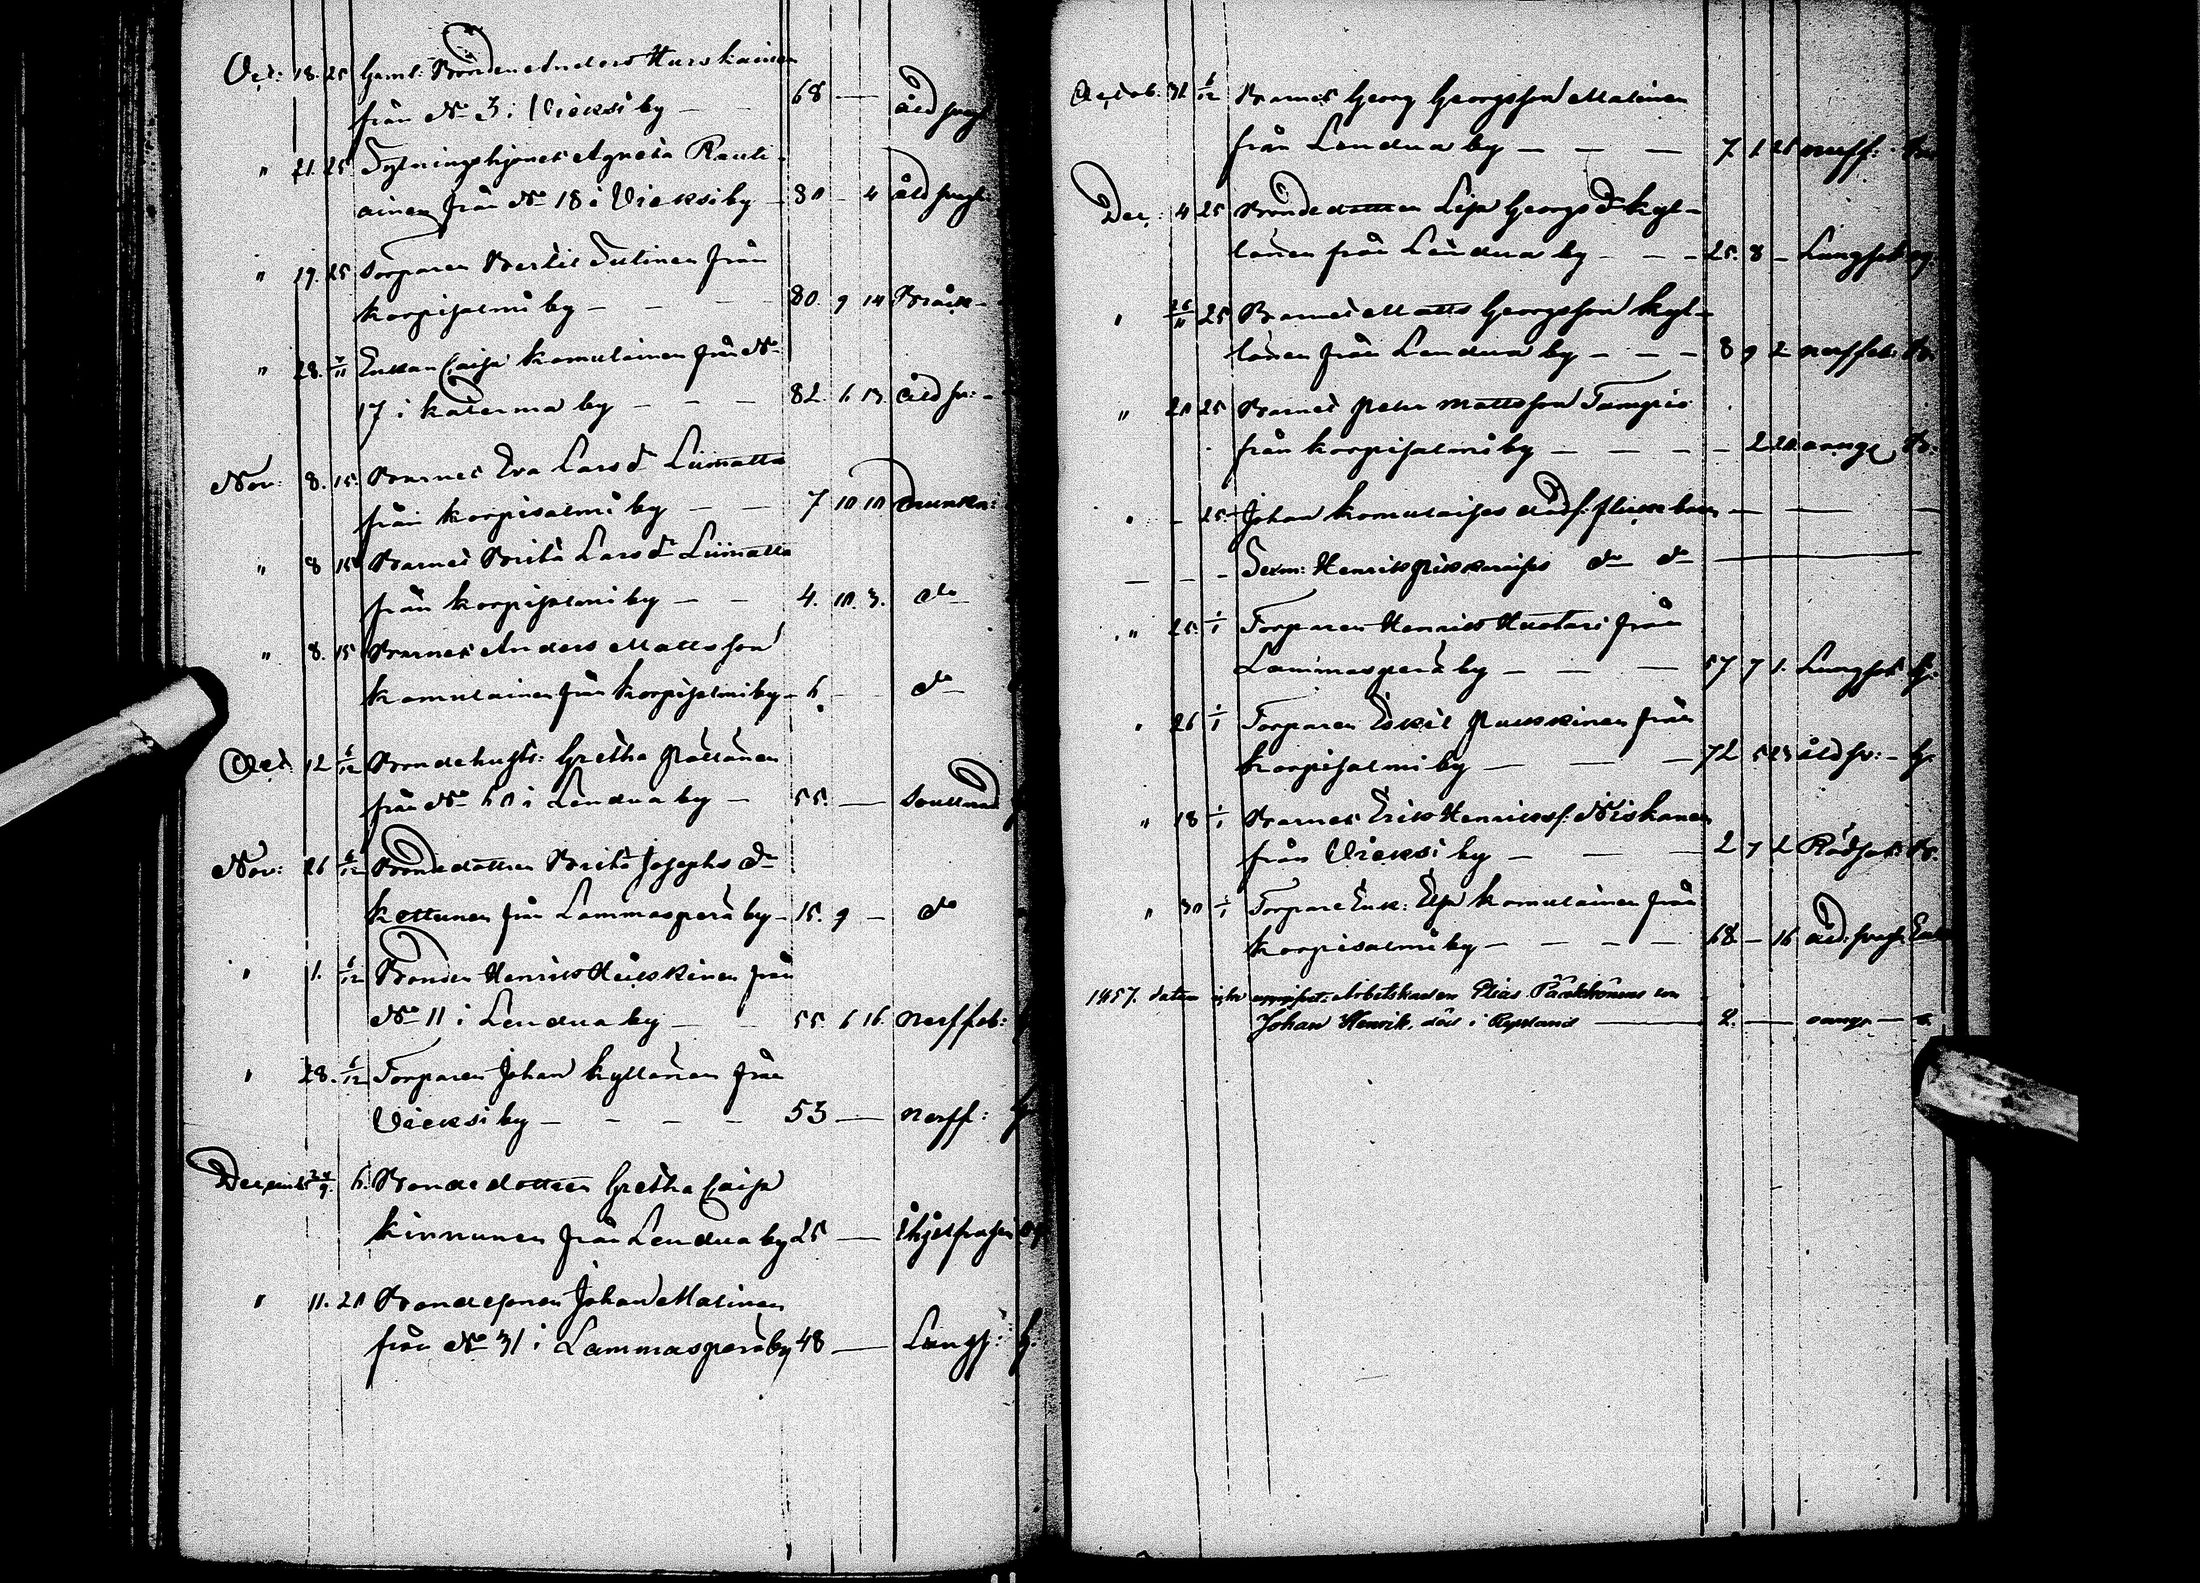 Oct: 18. 25 Gaml: Bonden Anders Hurskainen
från No 3 i Wieksi by — — 68 — ålds svagh
" 21. 25 Agneta Rauti-
ainen från No 18 i Wieksi by — 80 – 4 ålds svagh:
" 19. 25 Torparen Bertil Tulinen från
Korpisalmi by — — — 80. 9 14 Bråck
" 28. Enkan Caisa Komulainen från No
17 i Katerma by — — — 82 6 13 åld sv:
Nov: 8. 15 Barnet Eva Larsdr Liimatta
från Korpisalmi by — — 7 10 10 drunkn:
" 8 15 Barnet Brita Larsdr Liimatta
från Korpisalmi by — — 4. 10. 3. do
" 8. 15 Barnet Anders Mattsson
Komulainen från Korpisalmi by – 6 — do
Oct. 12 6/12 Bondehustr: Gretha
från No 60 i Lendua by — 55. —
Nov: 26 6/12 Bondedottren Brita Josephs dr
Kettunen från Lammasperä by – 15. 9 — do
" 1. 6/12 Bonden Henrik från
No 11 i Lendua by — — 55. 6 16 Nerffeb:
" 28. 6/12 Torparen Johan Kyllönen från
Wieksi by — — — — 53 — Nerff:
6. Bondedottren Gretha Caisa
Kinnunen från Lendua by 25 —
" 11. 20 Bondesonen Johan Malinen
från No 31 i Lammasperä by 48 — Lungs: G.
Octob. 31 6/12 Barnet Georg Georgsson Malinen
från Lendua by — — — 7. 1. 21 nerff: Bn
Dec: 4 25 Bondedottren Lisa Georgs dr Kyl-
lönen från Lendua by — — – 25. 8 – Lungsot og.
" 26/11 25 Barnet Matts Georgsson Kyl-
lönen från Lendua by — — – 8 9 2 nerffeb: Bn
" 20 25 Barnet Petter Mattsson Tampio
från Korpisalmi by — — — – – 2 20 B:
" – 25. Johan Komulaises dödf. flickebarn — — —
– – – Henrik do do —
" 25. 1/1 Torparen Henrik Huotari från
Lammasperä by — — — 57 7 1. Lungsot G.
" 26 1/1 Torparen Eskil från
Korpisalmi by — — — 72 5 23 åld sv: – G.
" 18 1/1 Barnet Erik Henrikss: Niskanen
från Wieksi by — — — 2 7 2 Rödsot: B.
" 30 1/1 Torpare Enk: Elsa Komulainen från
Korpisalmi by — — — — 68 – 16 åld: svagh. Enk
1857. datum Arbetskarlen Elias Pääkkönens son
Johan Henrik, död i Ryssland — 2. — — B.